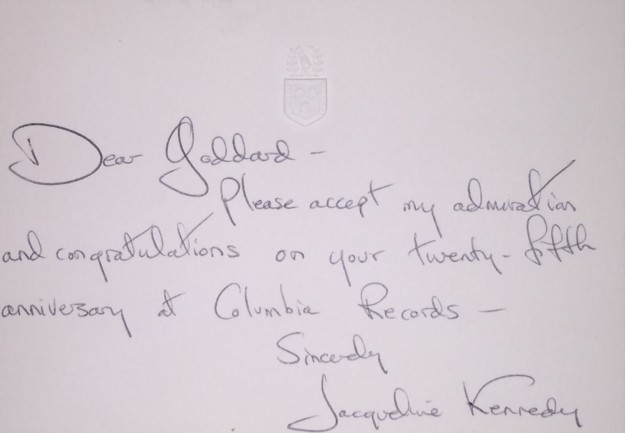 Dear Goddard —
Please accept my admiration
and congratulations on your twenty-fifth
anniversary at Columbia Records —
Sincerely
Jacqueline Kennedy